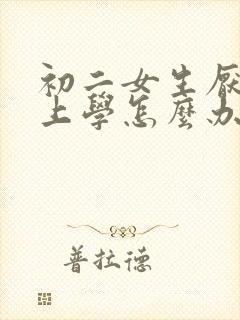 初二女生厭
上學怎麼办
普拉德